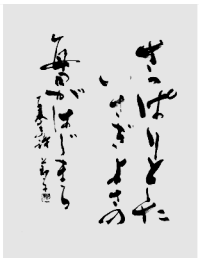 さっぱりとした
いさぎよさの
毎日がはじまる